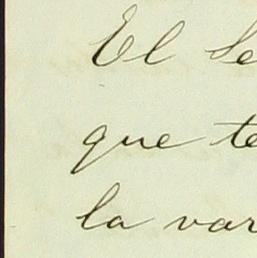 El Se
que te
la var